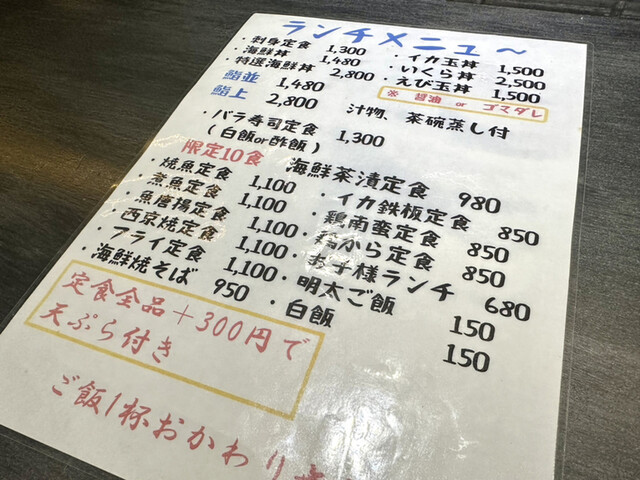 ランチメニュー～
・刺身定食 1,300
・海鮮丼 1,480
・特選海鮮丼 2,800
・イカ玉丼 1,500
・いくら丼 2,500
・えび玉丼 1,500
※ 醤油 or ゴマダレ
鮨並 1,480
鮨上 2,800
汁物、茶碗蒸し付
・バラ寿司定食 1,300
(白飯or酢飯)
限定10食 海鮮茶漬定食 980
・焼魚定食 1,100
・煮魚定食 1,100
・魚唐揚定食 1,100
・西京焼定食 1,100
・フライ定食 1,100
・海鮮焼そば 950
・イカ鉄板定食 850
・鶏南蛮定食 850
・鶏から定食 850
・お子様ランチ 680
・明太ご飯 150
・白飯 150
定食全品+300円で
天ぷら付き
ご飯1杯おかわり